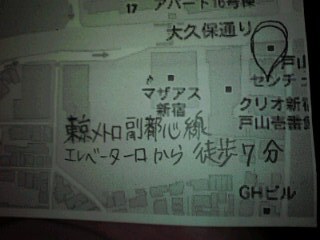 17 アパート16号棟
大久保通り
戸山
センチュ
マザアス
新宿
クリオ新宿
戸山壱番館
東京メトロ副都心線
エレベーター口から 徒歩7分
GHビル